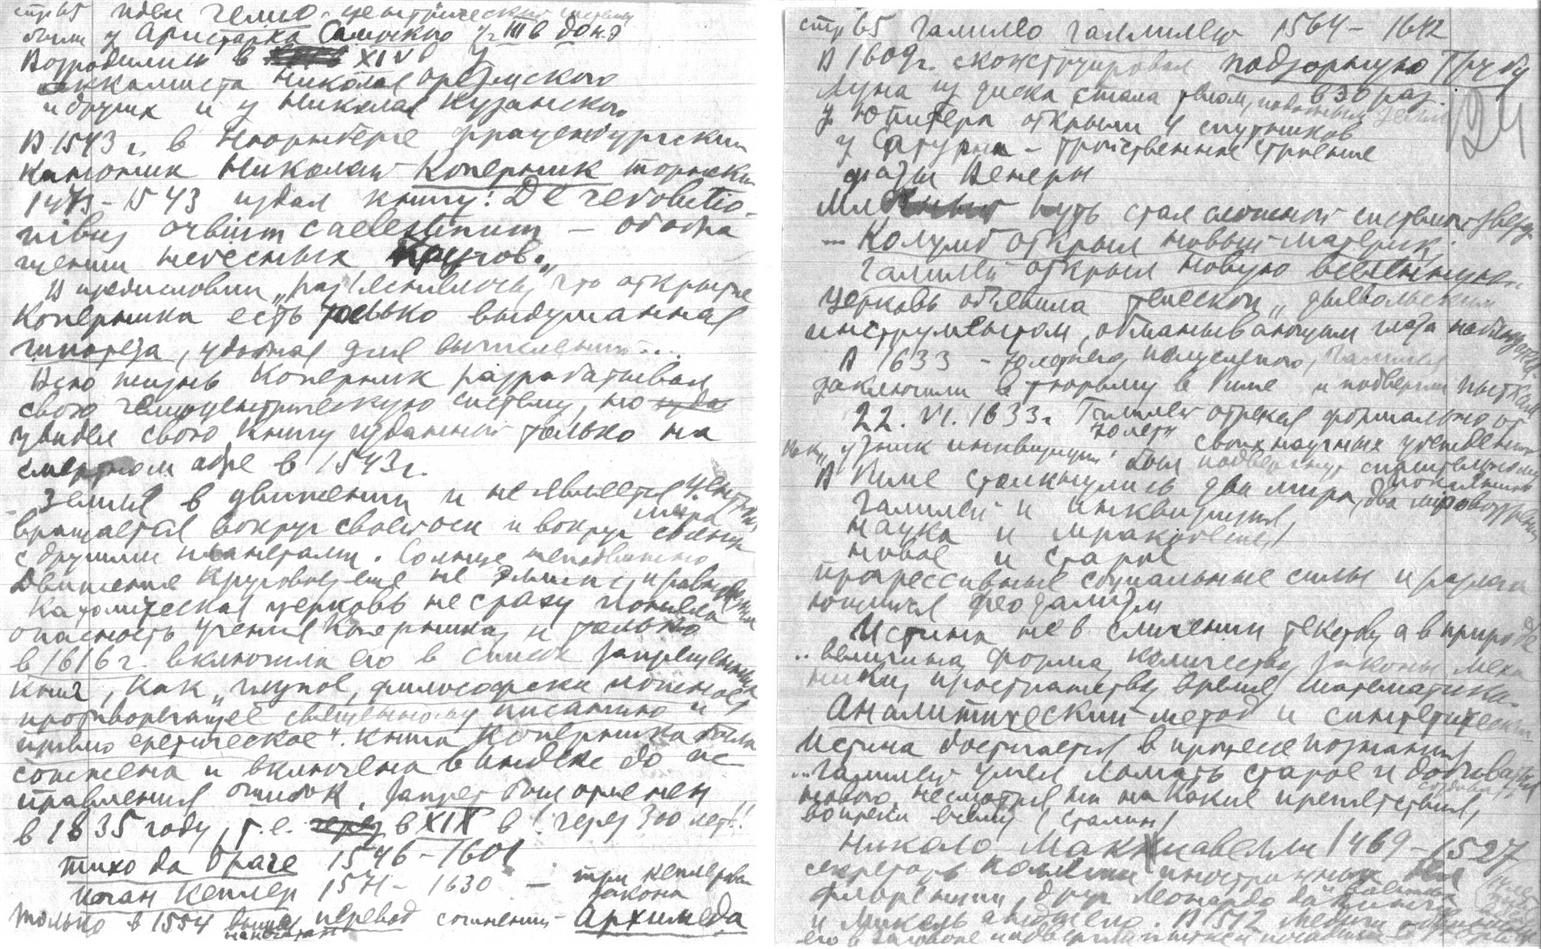 стр 65 идеи гелио-центрической системы
были у Аристарха Самосского уже III в до нэ
Возродились в XIV у
схоласта Николая Орезмского
и других и у Николая Кузанского
В 1543 г. в Нюрнберге фрауенбургский
каноник Николай Коперник торнский
1473-1543 издал книгу: De revolutio-
nibus orbium caelestium — об обра
щении небесных кругов."
В предисловии „разъяснялось, что открытие
Коперника есть только выдуманная
гипотеза, удобная для вычислений...
Всю жизнь Коперник разрабатывал
свою гелиоцентрическую систему, но
увидел свою книгу изданной только на
смертном одре в 1543 г.
Земля в движении и не является центром
мира
вращается вокруг своей оси и вокруг солнца
с другими планетами. Солнце неподвижно
Движения круговые еще не эллипс, и равномерны
Католическая церковь не сразу поняла
опасность учения Коперника, и только
в 1616 г. включила его в список запрещенных
книг, как „глупое, философски ложное
противоречащее священному писанию и
прямо еретическое". Книга Коперника была
сожжена и включена в индекс до ис
правления ошибок. Запрет был отменен
в 1835 году, т.е. в XIX в! через 300 лет!
Тихо да Браге 1546-1601
Иоган Кеплер 1571-1630 — три кеплеров
закона
только в 1554 вышел перевод сочинений - Архимеда
напечатан
стр 65 Галилео Галлилей 1564-1642
В 1609 г. сконструировал подзорную трубу
в 30 раз.
Луна из диска стала телом, подобным земле
124
у Юпитера открыли 4 спутников
у Сатурна - тройственное строение
фазы Венеры
Млечный путь стал сложной системой звезд
... Колумб открыл новый материк.
Галилей открыл новую вселенную..
Церковь объявила телескоп „дьявольским
инструментом, обманывающим глаза наблюдателя
В 1633 - 70 летнего Галилея
заключили в тюрьму в Риме и подвергли пыткам
22. VI. 1633 г Галилей отрекся формально от
70 лет
своих научных убеждений
узник инквизиции! был подвергнут
В Риме столкнулись два мира, два мировоззрения
Галилей и инквизиция,
наука и мракобесие,
новое и старое
прогрессивные социальные силы и разлага
ющийся феодализм
Истина не в сличении текстов, а в природе
.. величина, форма, количество, законы меха
ники, пространство, время, математика.
Аналитический метод и синтетический
Истина достигается в процессе познания,
...Галилей умел ломать старое и
нового, несмотря ни на какие препятствия,
вопреки всему (Сталин)
Николо Макиавелли 1469-1527
секретарь коллегии иностранных дел
Флоренции, друг Леонардо да Винчи
и Микель анджело. В 1512 Медичи
его в заговоре и подвергла пытке и